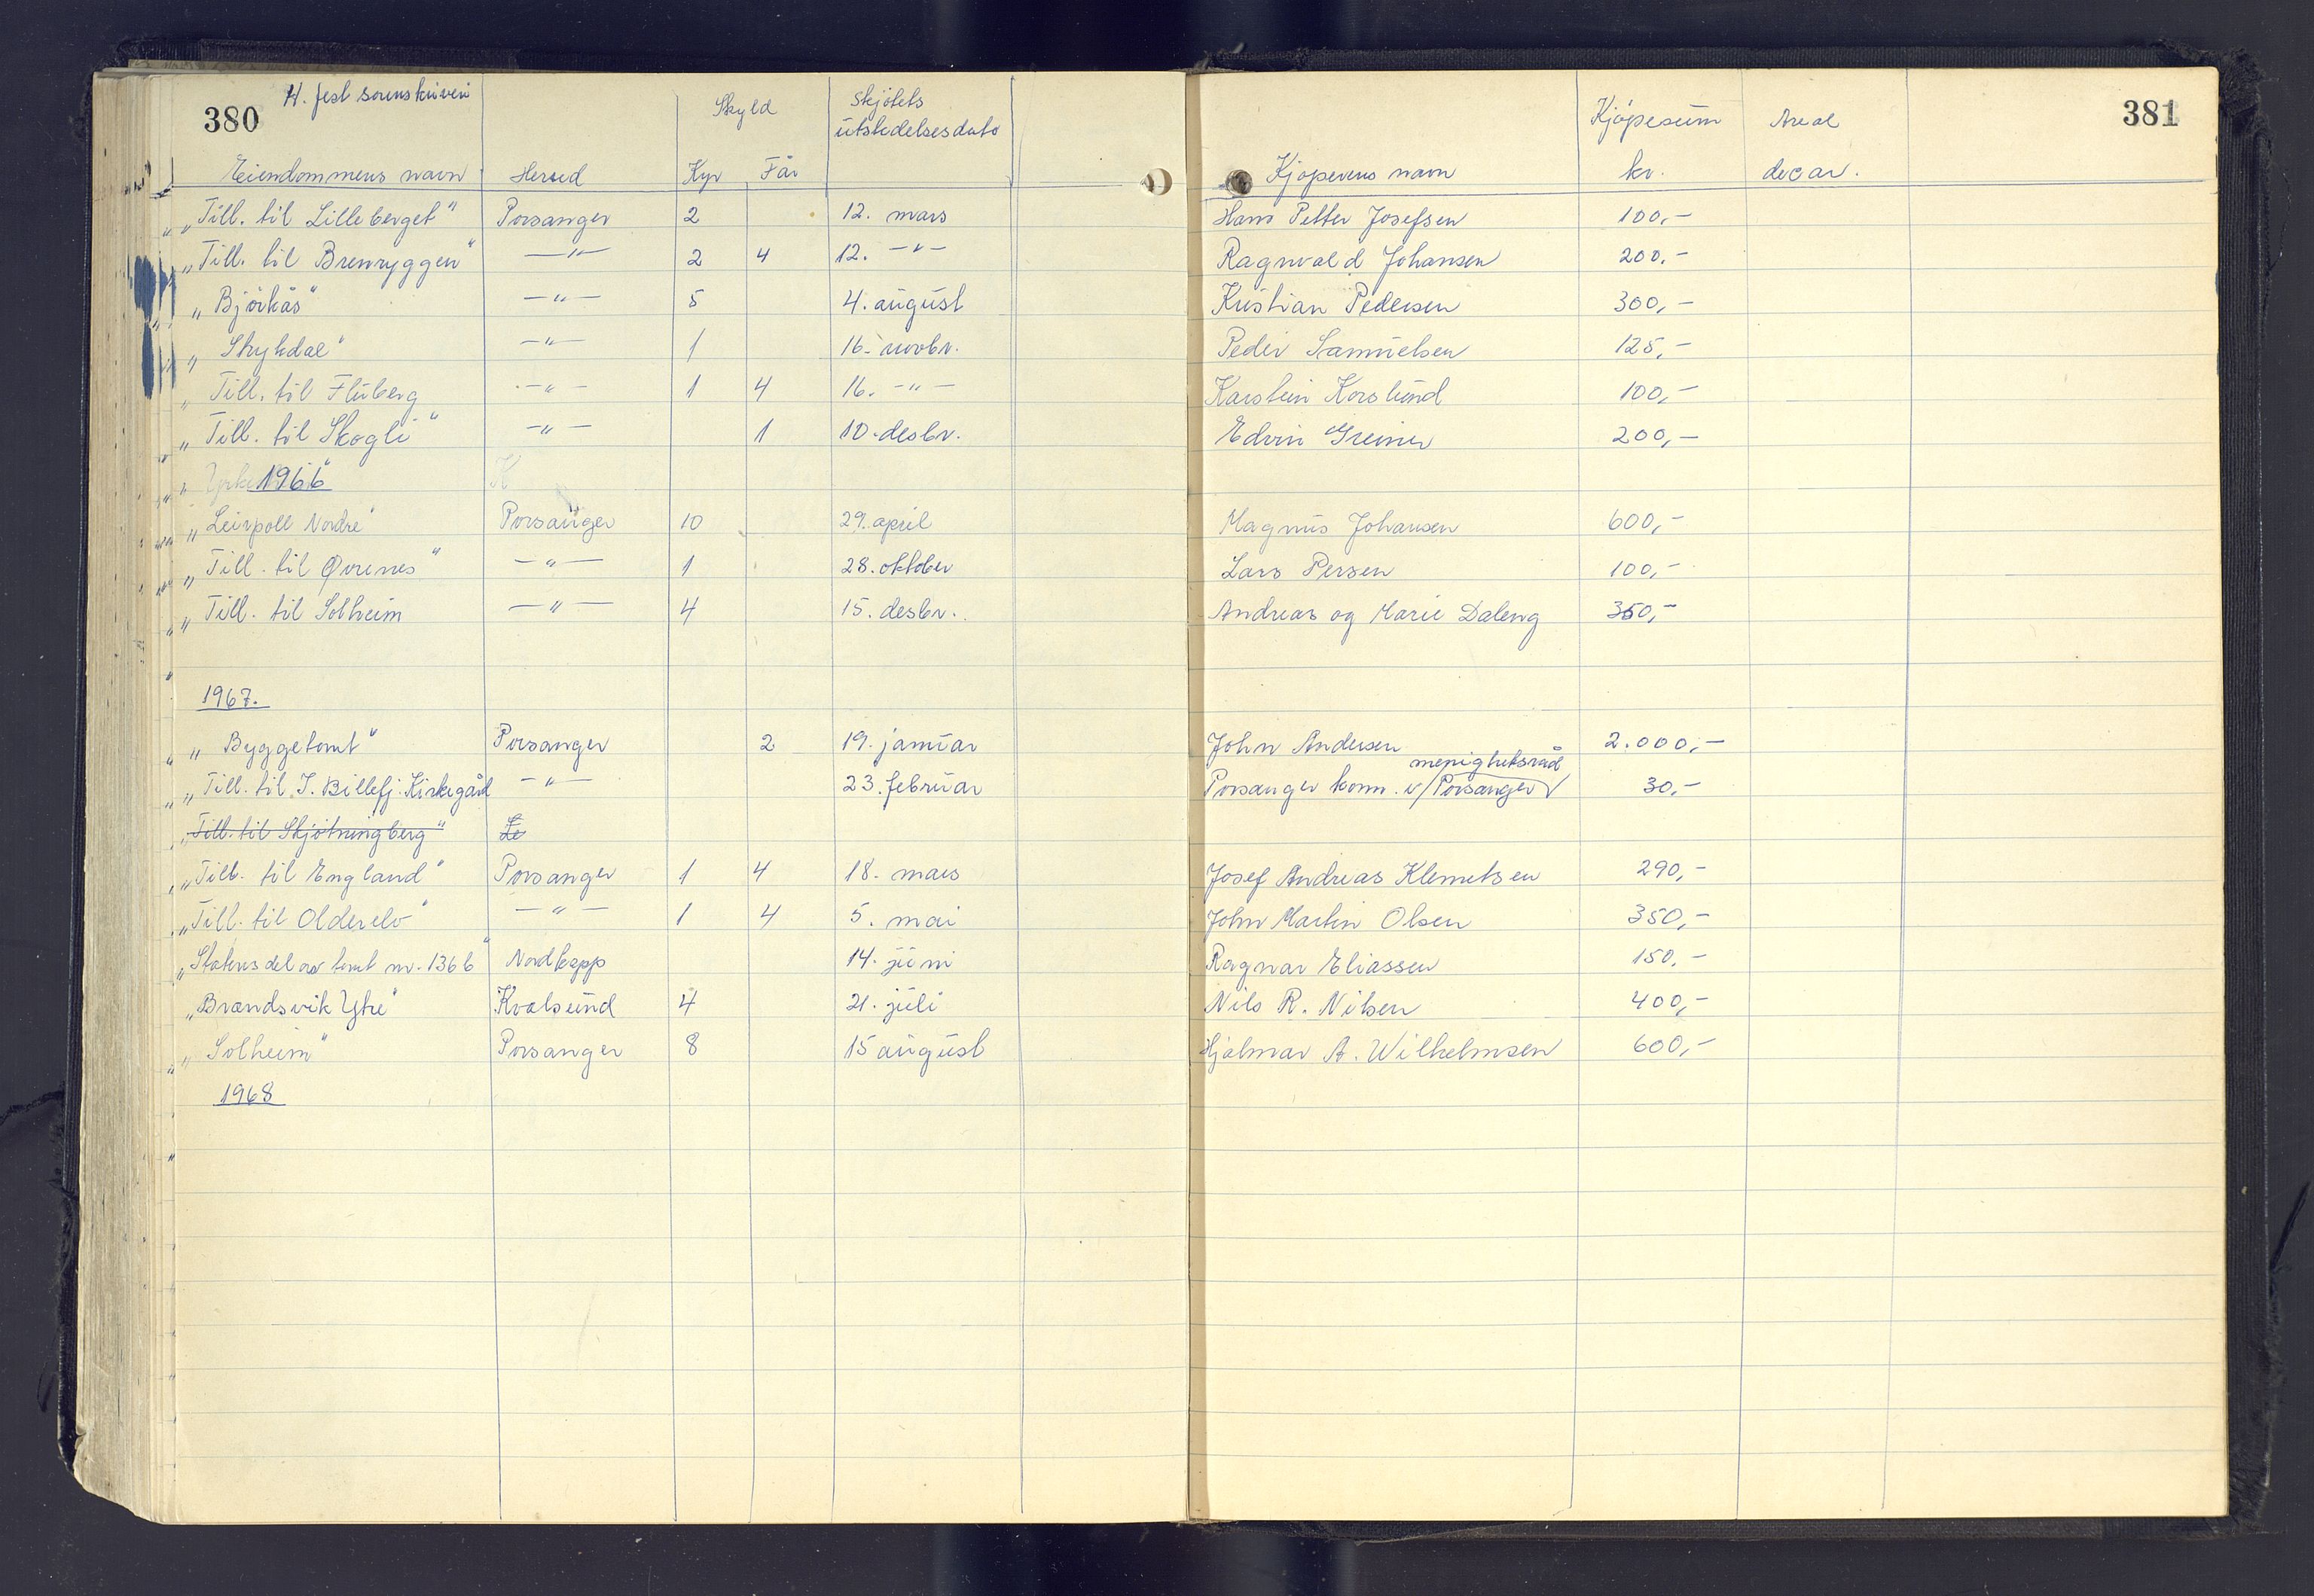 380 H. fest sorenskriveri Skyld Skjøtets Kjøpesum Areal 381
utstedelsesdato
Eiendommens navn Herred Kyr Får Kjøperens navn kr. decar.
„Till. til Lilleberget" Porsanger 2 12. mars Hans Petter Josefsen 100,-
„Till. til Brenryggen" —"— 2 4 12. —"— Ragnvald Johansen 200,-
„Björkås" —"— 5 4. august Kristian Pedersen 300,-
„Stykdal" —"— 1 16. novbr. Peder Samuelsen 125,-
„Till. til Fluberg —"— 1 4 16. —"— Karstein Korslund 100,-
„Till. til Skogli" —"— 1 10. desbr. Edvin Greiner 200,-
1966
„Leirpoll Nordre" Porsanger 10 29. april Magnus Johansen 600,-
„Till. til Øvrenes" —"— 1 28. oktober Lars Persen 100,-
„Till. til Solheim —"— 4 15. desbr. Andreas og Marie Daleng 350,-
1967.
„Byggetomt" Porsanger 2 19. januar John Andersen 2.000,-
menighetsråd
„Till. til I. Billefj. Kirkegård —"— 23. februar Porsanger kom. v/Porsanger 30,-
„Till. til Skjötningberg" Le
„Till. til England" Porsanger 1 4 18. mars Josef Andreas Klemetsen 290,-
„Till. til Olderelv" —"— 1 4 5. mai John Martin Olsen 350,-
„Statens del av tomt nr. 136 b" Nordkapp 14. juni Ragnar Eliassen 150,-
„Brandsvik Ytre" Kvalsund 4 21. juli Nils R. Nilsen 400,-
„Solheim" Porsanger 8 15 august Hjalmar A. Wilhelmsen 600,-
1968